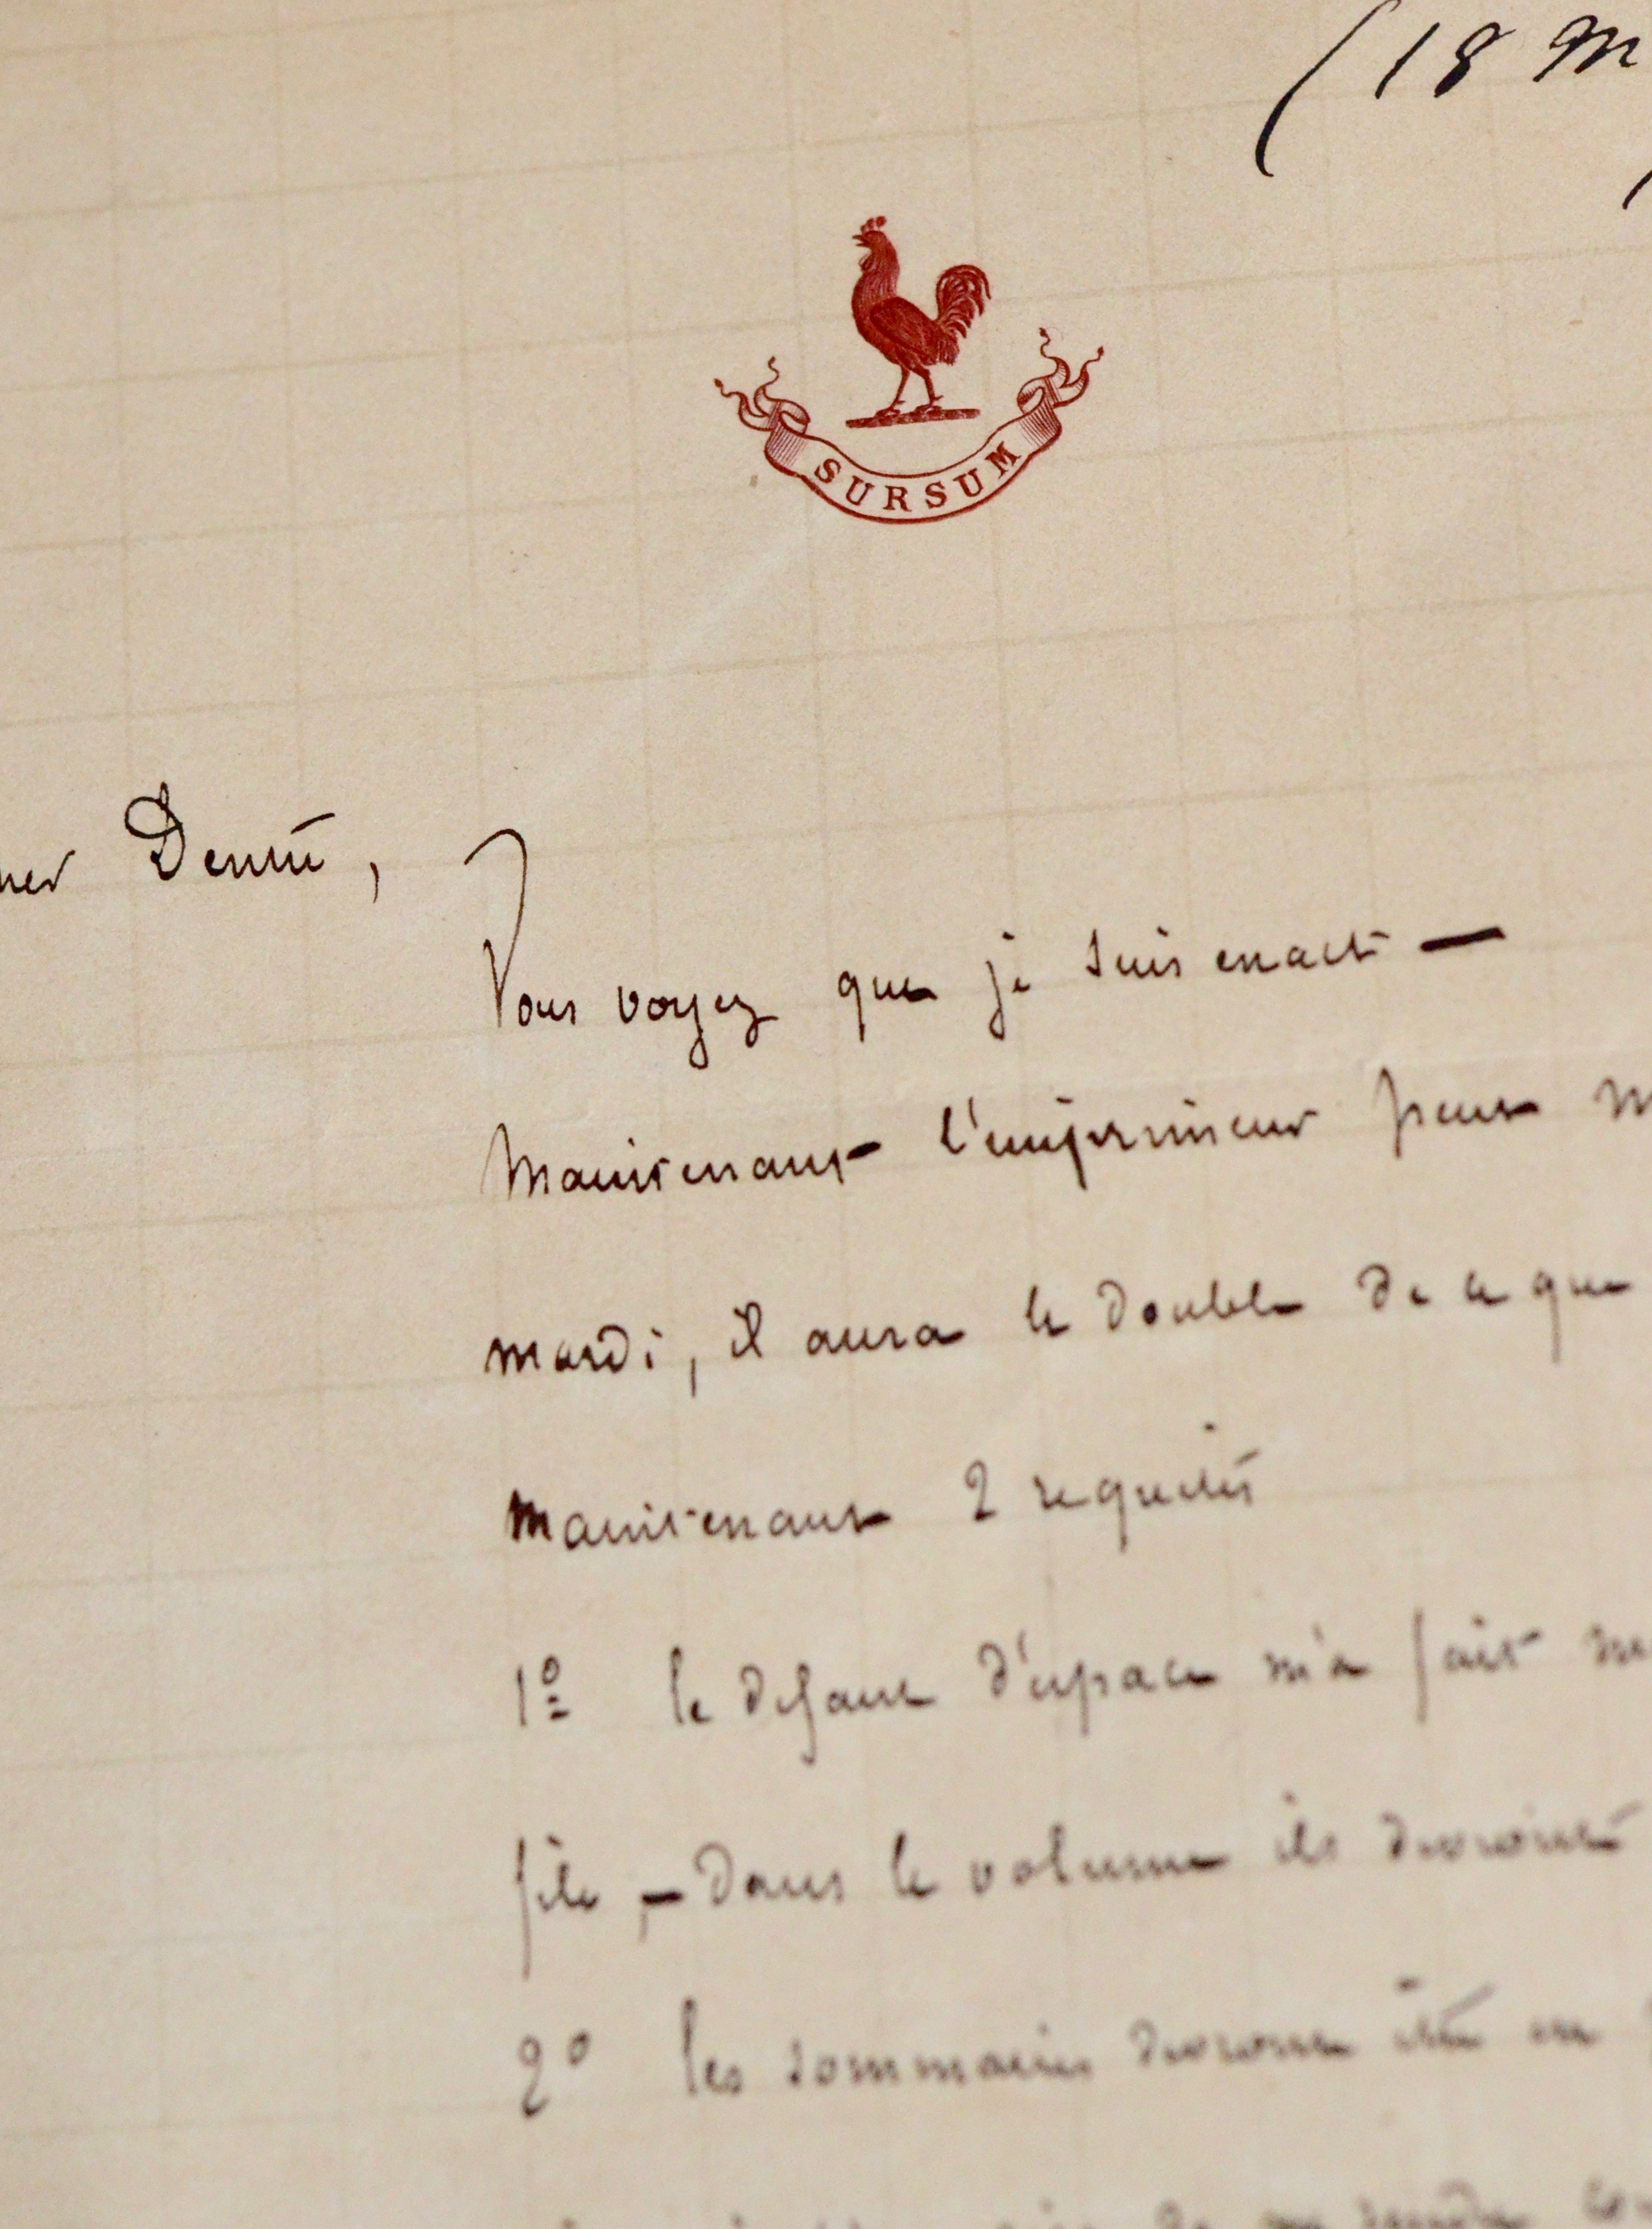 (18 M
SURSUM
Dentu,
Vous voyez que je suis exact —
Maintenant l'imprimeur peut
mardi, il aura le double de ce que
Maintenant 2 requêtes
1º le défaut d'espace m'a fait
file, — Dans le volume ils devront
2º les sommaires devront être en